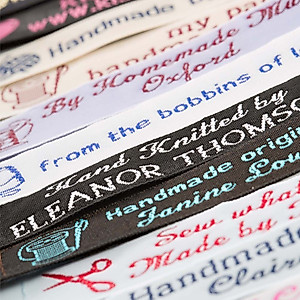 www.
Handmade
my pa
handma
By Homemade Ma
Oxford
from the bobbins of
Hand Knitted by
ELEANOR THOMS
Handmade origi
Janine Lou
Sew wha
Made by
Handmad
Clair